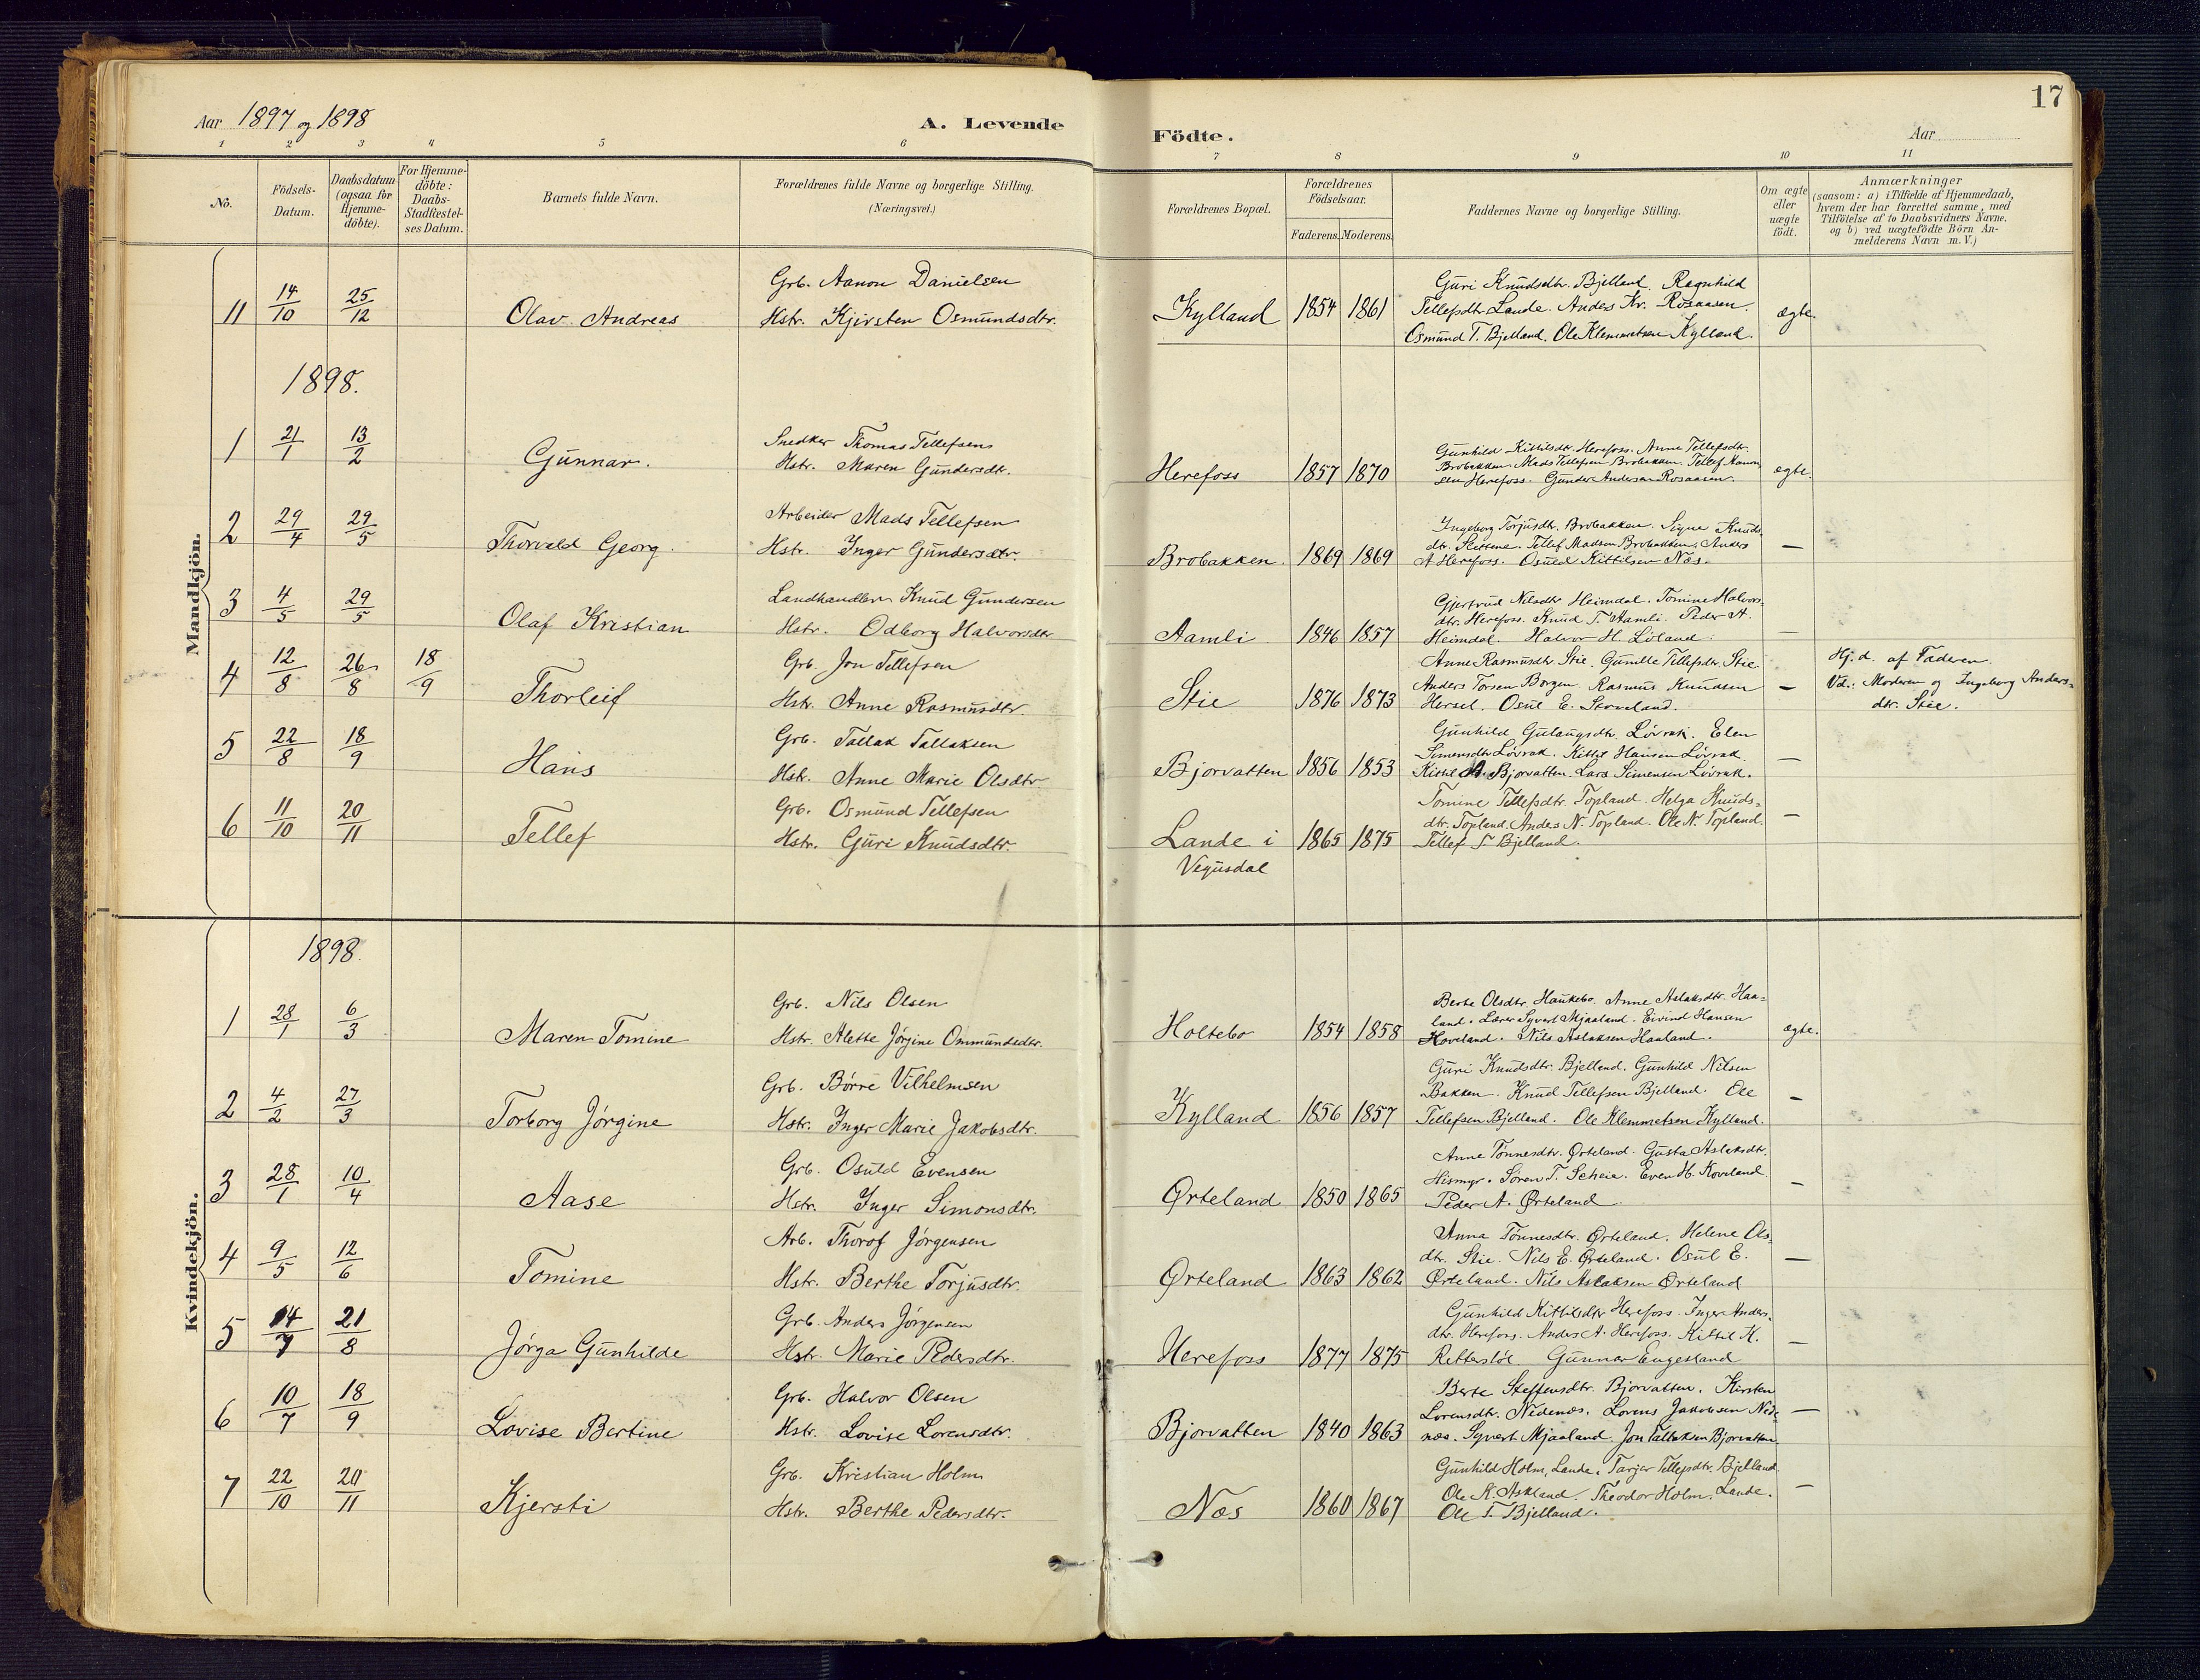 17
Aar 1897 og 1898
A. Levende
Födte.
Aar
1 2 3 4 5 6 7 8 9 10 11
No.
Födsels-
Datum.
Daabsdatum
(ogsaa for
Hjemme-
döbte).
For Hjemme-
döbte:
Daabs-
Stadfæstel-
ses Datum.
Barnets fulde Navn.
Forældrenes fulde Navne og borgerlige Stilling.
(Næringsvei.)
Forældrenes Bopæl.
Forældrenes
Födselsaar.
Faderens. Moderens.
Faddernes Navne og borgerlige Stilling.
Om ægte
eller
uægte
födt.
Anmærkninger
(saasom: a) i Tilfælde af Hjemmedaab,
hvem der har forrettet samme, med
Tilföielse af to Daabsvidners Navne.
og b) ved uægtefödte Börn An-
melderens Navn m. V.)
Mandkjön.
11 14/10 25/12 Olav Andreas
Grb. Aanon Danielsen
Hstr. Kjirsten Osmundsdtr.
Kylland 1854 1861
Guri Knudsdtr. Bjelland. Ragnhild
Tellefsdtr. Lande. Anders Kr. Rosaasen.
Osmund T. Bjelland. Ole Klemmetsen Kylland.
ægte.
1898.
1 21/1 13/2 Gunnar.
Snedker Thomas Tellefsen
Hstr. Maren Gundersdtr.
Herefoss 1857 1870
Gunhild Kittilsdtr. Herefoss. Anne Tellefsdtr.
Brobakken. Mads Tellefsen Brobakken. Tellef Aanon
sen Herefoss. Gunder Andersen Rosaasen.
ægte.
2 29/4 29/5 Thorvald Georg.
Arbeider Mads Tellefsen
Hstr. Inger Gundersdtr.
Brobakken. 1869 1869
Ingeborg Torjusdtr. Brobakken. Signe Knuds
dtr. Tellef Madsen Brobakken. Anders
A Herefoss. Kittilsen Næs.
—
3 4/5 29/5 Olaf Kristian
Landhandler Knud Gundersen
Hstr. Odborg Halvorsdtr.
Aamli 1846 1857
Gjertrud Nilsdtr Heimdal. Tomine Halvors
dtr. Herefoss. Knud T. Aamli. Peder A.
Heimdal. Halvor H. Løland.
—
4 12/8 26/8 18/9 Thorleif
Grb. Jon Tellefsen
Hstr. Anne Rasmusdtr.
Stie 1876 1873
Anne Rasmusdtr. Stie. Gunille Tellefsdtr. Stie
Anders Torsen Borgen. Rasmus Knudsen
Hersel. Osul E.
—
Hj.d. af Faderen.
Vd.: Moderen og Ingeborg Anders-
dtr. Stie.
5 22/8 18/9 Hans
Grb. Tallak Tallaksen
Hstr. Anne Marie Olsdtr
Bjorvatten 1856 1853
Gunhild Gulaugsdtr. Løvrak. Elen
Simensdtr Løvrak. Kittil Hansen Løvrak.
Kittil Bjorvatten. Lars Simensen Løvrak.
—
6 11/10 20/11 Tellef
Grb. Osmund Tellefsen
Hstr. Guri Knudsdtr.
Lande i
Vegusdal
1865 1875
Tomine Tellefsdtr. Topland. Helga Knuds-
dtr. Topland. Anders N. Topland. Ole N. Topland.
Tellef T. Bjelland.
—
Kvindekjön.
1898.
1 28/1 6/3 Maren Tomine
Grb. Nils Olsen
Hstr. Alette Jørgine Ommundsdtr.
Holtebo 1854 1858
Berte Olsdtr. Haukebo. Anne Aslaksdtr. Haa-
land. Lærer Syvert Mjaaland. Eivind Hansen
Hoveland. Nils Aslaksen Haaland.
ægte.
2 4/2 27/3 Torborg Jørgine
Grb. Børre Vilhelmsen
Hstr. Inger Marie Jakobsdtr.
Kylland 1856 1857
Guri Knudsdtr. Bjelland. Gunhild Nilsen
Bakken. Knud Tellefsen Bjelland. Ole
Tellefsen Bjelland. Ole Klemmetsen Kylland.
—
3 28/1 10/4 Aase
Grb. Osuld Evensen
Hstr. Inger Simonsdtr.
Ørteland 1850 1865
Anne Tønnesdtr. Ørteland. Gusta Aslaksdtr.
Hismyr. Søren T. Scheie. Even H. Koveland.
Peder A. Ørteland
—
4 9/5 12/6 Tomine
Arb. Thorof Jørgensen
Hstr. Berthe Torjusdtr.
Ørteland 1863 1862
Anna Tønnesdtr. Ørteland. Helene Ols-
dtr. Stie. Nils E. Ørteland. Osul E.
Ørteland. Nils Aslaksen Ørteland
—
5 14/7 21/8 Jørga Gunhilde
Grb. Anders Jørgensen
Hstr. Marie Pedersdtr.
Herefoss 1877 1875
Gunhild Kittilsdtr Herefoss. Inger Anders.
dtr. Herefoss. Anders A. Herefoss. Kittil K.
Retterstøl. Gunnar Engesland
—
6 10/7 18/9 Lovise Bertine
Grb. Halvor Olsen
Hstr. Lovise Lorensdtr.
Bjorvatten 1840 1863
Berte Steffensdtr. Bjorvatten. Kirsten
Lorensdtr. Nedenæs. Lorens Jakobsen Nede-
næs. Syvert Mjaaland. Jon Tallaksen Bjorvatten.
—
7 22/10 20/11 Kjersti
Grb. Kristian Holm
Hstr. Berthe Pedersdtr.
Næs 1860 1867
Gunhild Holm, Lande. Tarjer Tellefsdtr. Bjelland.
Ole K. Askland. Theodor Holm. Lande.
Ole T. Bjelland.
—